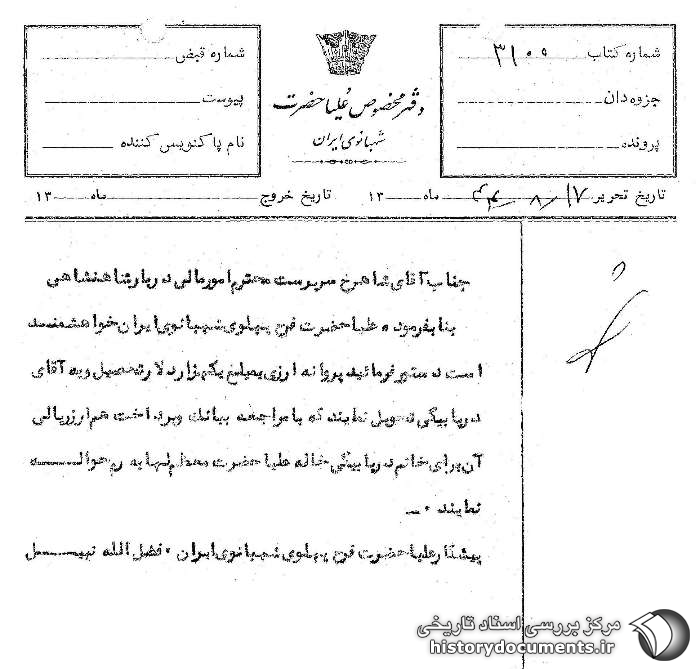 شماره کتاب ۳۱۰۹
جزوه‌دان
پرونده
دفتر مخصوص علیاحضرت
شهبانوی ایران
شماره قبض
پیوست
نام پاکنویس کننده
تاریخ تحریر ۱۷/۸/ ماه ۱۳ تاریخ خروج ماه ۱۳
جناب آقای شاهرخ سرپرست محترم امور مالی دربار شاهنشاهی
بنا بفرموده علیاحضرت فرح پهلوی شهبانوی ایران خواهشمند
است دستور فرمائید پروانه ارزی بمبلغ یکهزار دلار تحصیل و به آقای
دریابیگی تحویل نمایند که با مراجعه ببانك و پرداخت هم ارز ریالی
آن برای خانم دریابیگی خاله علیاحضرت معظم لها به رم حواله
نمایند .
پیشکار علیاحضرت فرح پهلوی شهبانوی ایران . فضل الله نبیل
مرکز بررسی اسناد تاریخی
historydocuments.ir